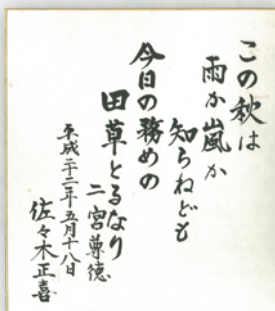 この秋は
雨か嵐か
知らねども
今日の務めの
田草とるなり
二宮尊徳
平成二十二年五月十八日
佐々木正喜